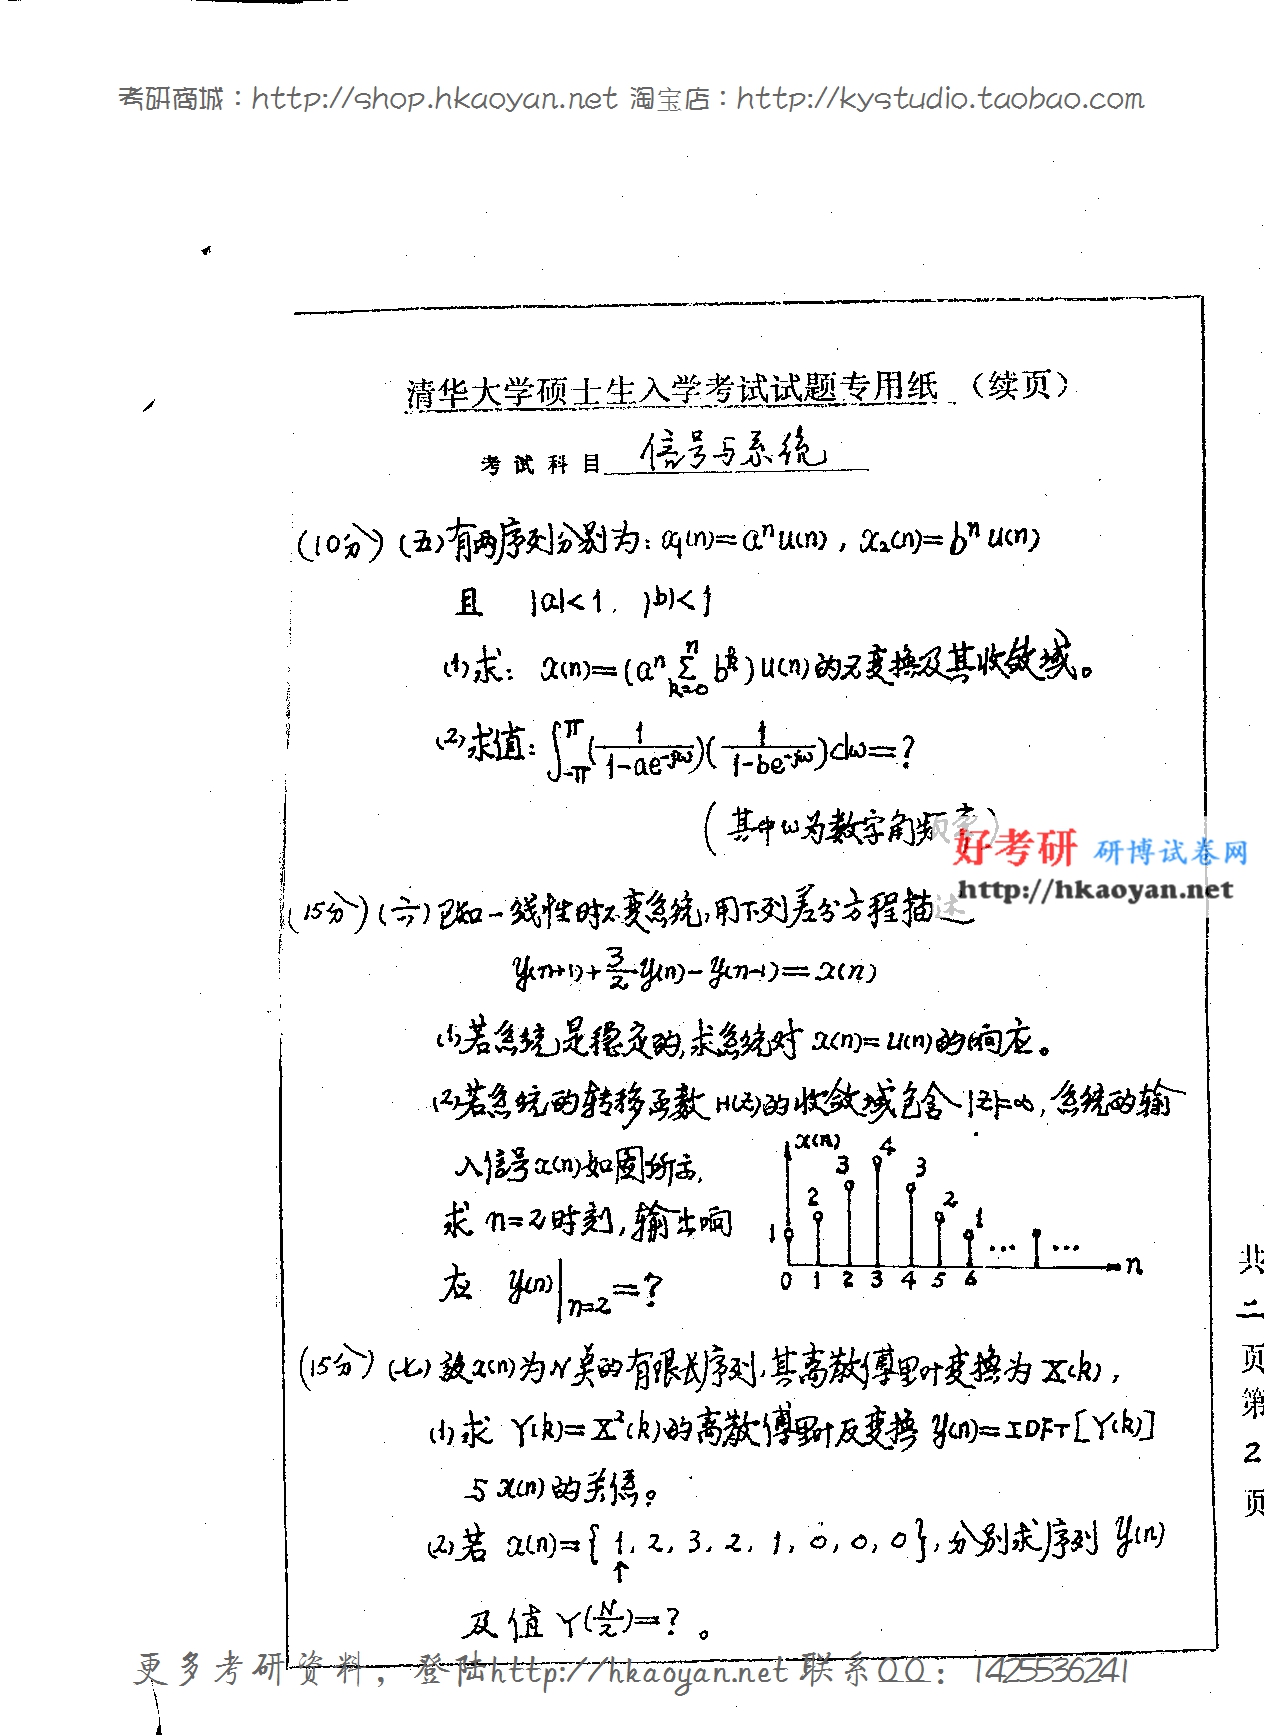 考研商城：http://shop.hkaoyan.net 淘宝店：http://kystudio.taobao.com
清华大学硕士生入学考试试题专用纸（续页）
考试科目 信号与系统
(10分) (五)有两序列分别为：x₁(n)=aⁿu(n)，x₂(n)=bⁿu(n)
且 |a|<1，|b|<1
(1)求：x(n)=(aⁿ Σ_{k=0}^{n} bᵏ)u(n)的Z变换及其收敛域。
(2)求值：∫_{-π}^{π}(1/(1-ae^{-jω}))(1/(1-be^{-jω}))dω=？
(其中ω为数字角频率)
好考研 研博试卷网
http://hkaoyan.net
(15分) (六)已知一线性时不变系统，用下列差分方程描述
y(n+1)+3/2 y(n)-y(n-1)=x(n)
(1)若系统是稳定的，求系统对 x(n)=u(n)的响应。
(2)若系统的转移函数H(Z)的收敛域包含|Z|=∞，系统的输
入信号x(n)如图所示，
求 n=2时刻，输出响
应 y(n)|_{n=2}=？
x(n)
1 2 3 4 3 2 1 … …
0 1 2 3 4 5 6 n
(15分) (七)设x(n)为N点的有限长序列，其离散傅里叶变换为X(k)，
(1)求 Y(k)=X²(k)的离散傅里叶反变换 y(n)=IDFT[Y(k)]
与x(n)的关系。
(2)若 x(n)={1，2，3，2，1，0，0，0}，分别求序列 y(n)
↑
及值 Y(N/2)=？。
共二页第2页
更多考研资料，登陆http://hkaoyan.net 联系QQ：1425536241